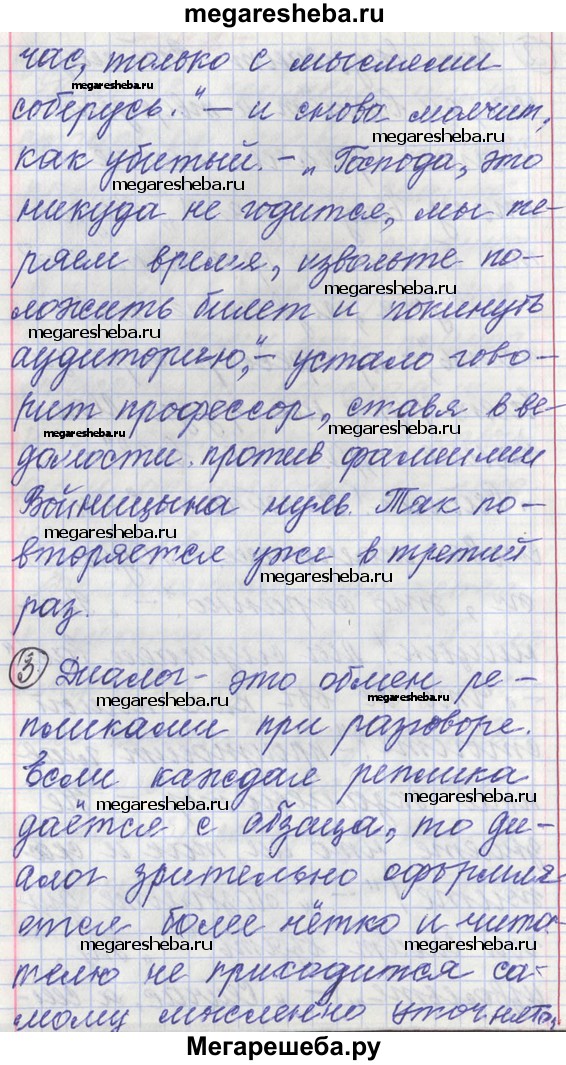 megaresheba.ru
час, только с мыслями
megaresheba.ru
соберусь." – и снова молчит,
megaresheba.ru
как убитый. – „Господа, это
megaresheba.ru
никуда не годится, мы те-
ряем время, извольте по-
megaresheba.ru
ложить билет и покинуть
megaresheba.ru
аудиторию," – устало гово-
megaresheba.ru
рит профессор, ставя в ве-
megaresheba.ru
домости против фамилии
Войницына нуль. Так по-
megaresheba.ru
вторяется уже в третий
megaresheba.ru
раз.
3 Диалог – это обмен ре-
megaresheba.ru megaresheba.ru
пликами при разговоре.
Если каждая реплика
megaresheba.ru megaresheba.ru
даётся с абзаца, то ди-
алог зрительно оформля
ется более чётко и чита-
megaresheba.ru megaresheba.ru
телю не приходится са-
мому мысленно уточнять,
Мегарешеба.ру